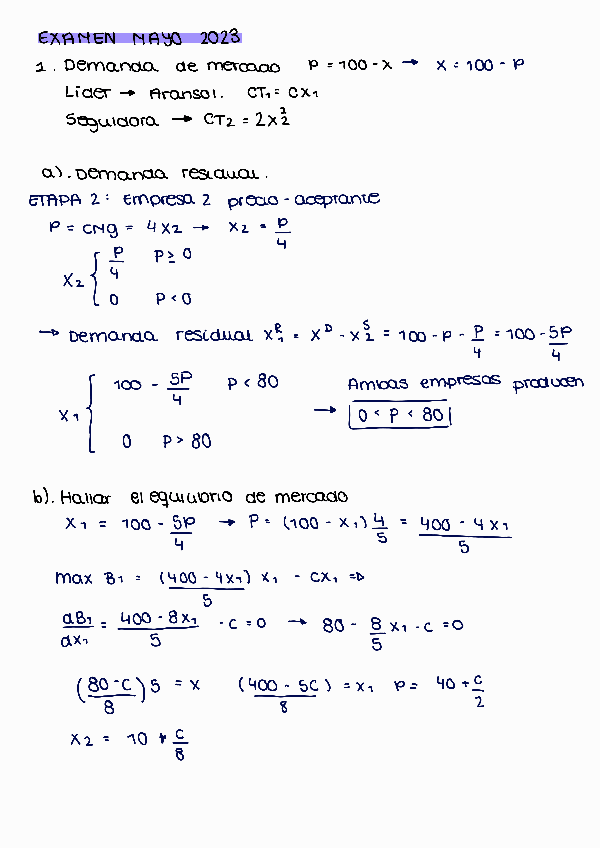 EXAMEN MAYO 2023
1. Demanda de mercado P = 100 - X → X = 100 - P
Líder → Aransol. CT₁ = CX₁
Seguidora → CT₂ = 2X₂²
a). Demanda residual.
ETAPA 2: Empresa 2 precio-aceptante
P = CMg = 4X₂ → X₂ = P/4
X₂ { P/4 P ≥ 0
0 P < 0
→ Demanda residual X₁ᴿ = Xᴰ - X₂ˢ = 100 - P - P/4 = 100 - 5P/4
X₁ { 100 - 5P/4 P < 80 Ambas empresas producen
→ 0 < P < 80
0 P > 80
b). Hallar el equilibrio de mercado
X₁ = 100 - 5P/4 → P = (100 - X₁) 4/5 = (400 - 4X₁)/5
Max B₁ = (400 - 4X₁)/5 X₁ - CX₁ ⇒
dB₁/dX₁ = (400 - 8X₁)/5 - C = 0 → 80 - 8/5 X₁ - C = 0
((80 - C)/8) 5 = X (400 - 5C)/8 = X₁ P = 40 + C/2
X₂ = 10 + C/8